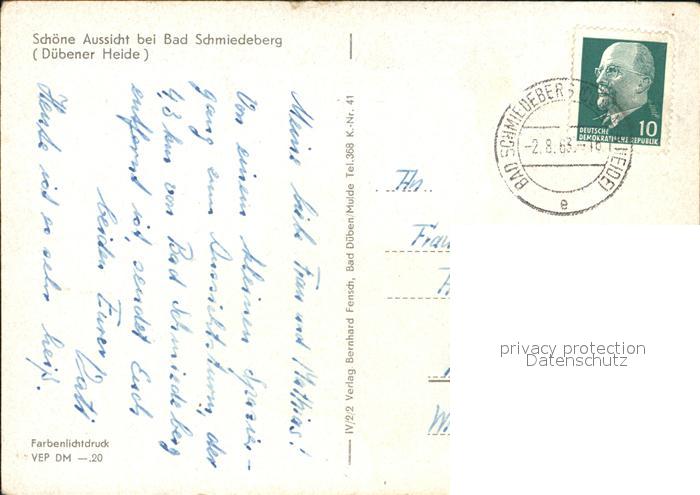 Schöne Aussicht bei Bad Schmiedeberg
(Dübener Heide)
Meine liebe Frau und Matthias!
Von einem kleinen Spazier-
gang zum Aussichtsturm, der
4,3 km von Bad Schmiedeberg
entfernt ist, sendet Euch
beiden Euer
Vati
Heute ist es sehr heiß.
Farbenlichtdruck
VEP DM —.20
IV/2/2 Verlag Bernhard Fensch, Bad Düben/Mulde Tel.368 K.-Nr. 41
BAD SCHMIEDEBERG
HEIDE)
-2.8.63.
e
DEUTSCHE
DEMOKRATISCHE REPUBLIK
10
An
Frau
privacy protection
Datenschutz